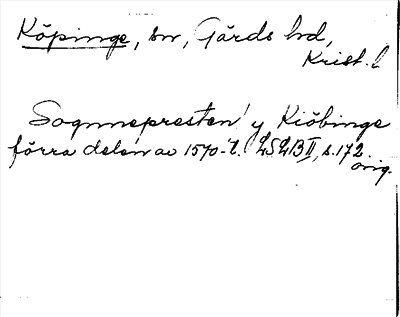 Köpinge, sn, Gärds hd,
Krist. l
Sognnepresten y Kiöbinge
förra delen av 1570-t. LSLB II, s. 172
orig.